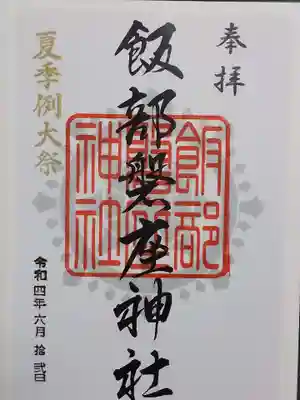 奉拝
飯部磐座神社
飯部磐座神社
夏季例大祭
令和四年六月拾弐日